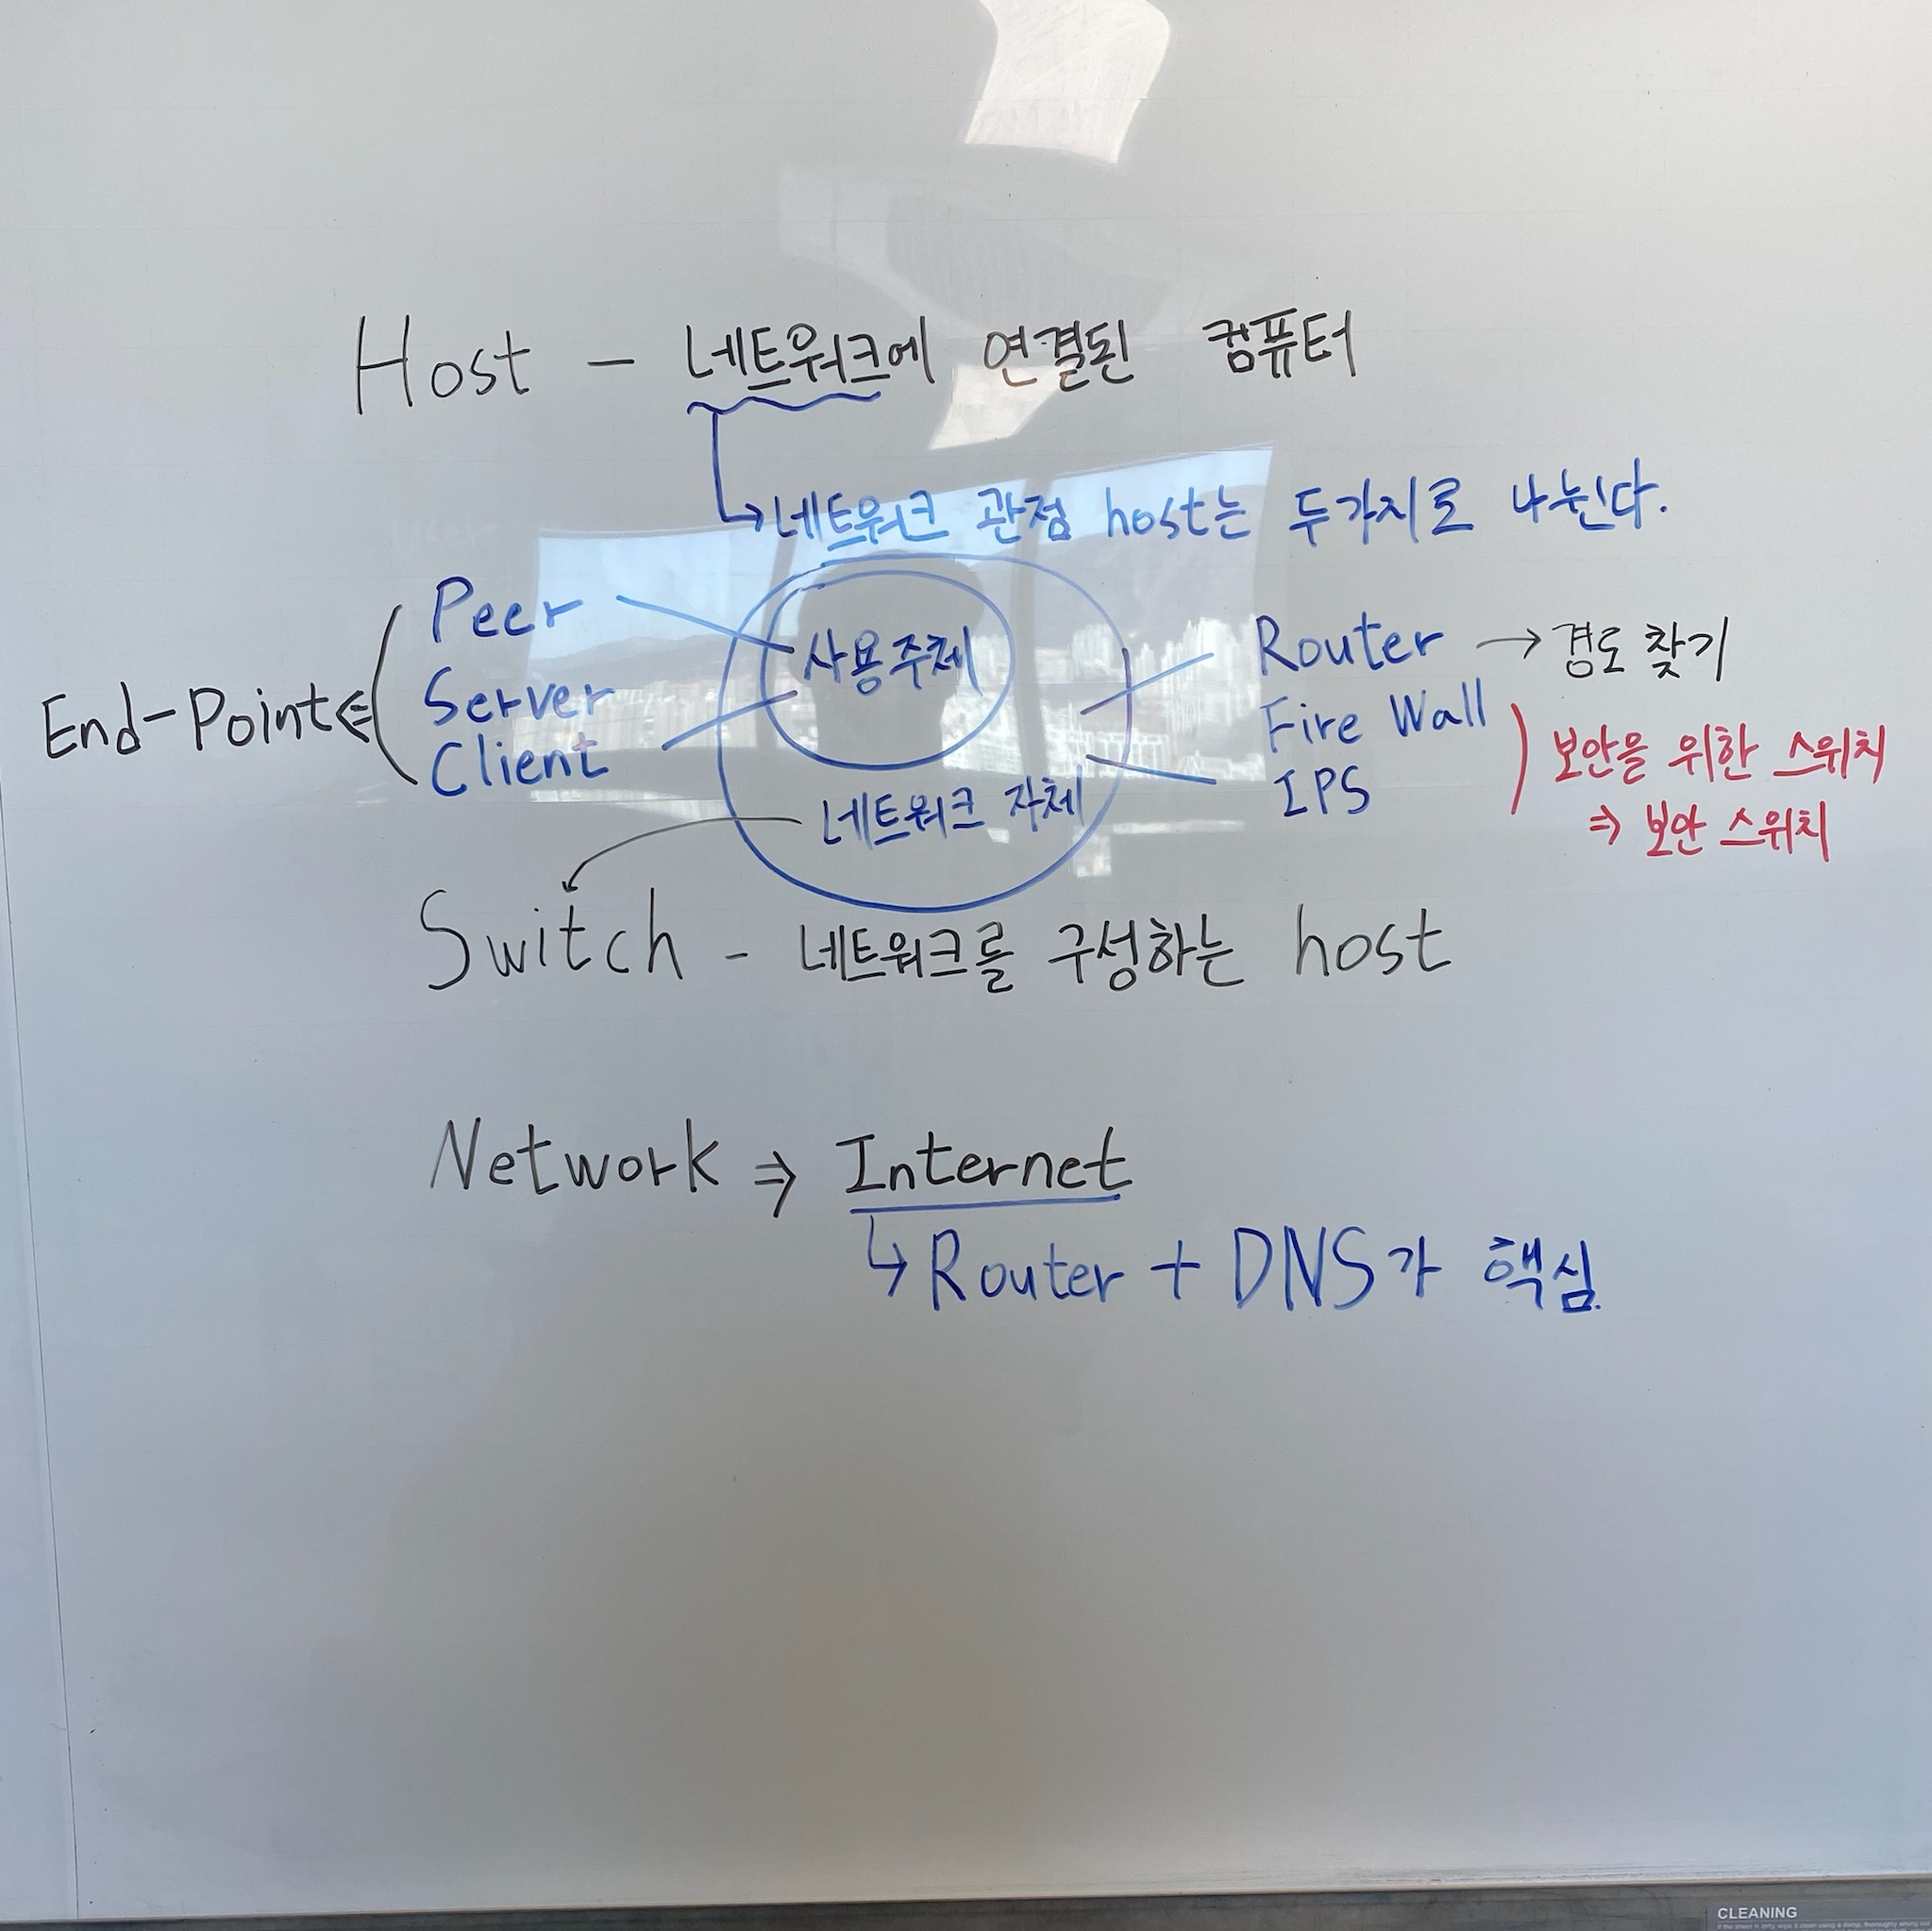 Host - 네트워크에 연결된 컴퓨터
↳ 네트워크 관점 host는 두가지로 나뉜다.
End-Point ⇐
Peer
Server
Client
사용주체
네트워크 자체
Router → 경로 찾기
Fire Wall
IPS
보안을 위한 스위치
⇒ 보안 스위치
Switch - 네트워크를 구성하는 host
Network ⇒ Internet
↳ Router + DNS가 핵심.
CLEANING